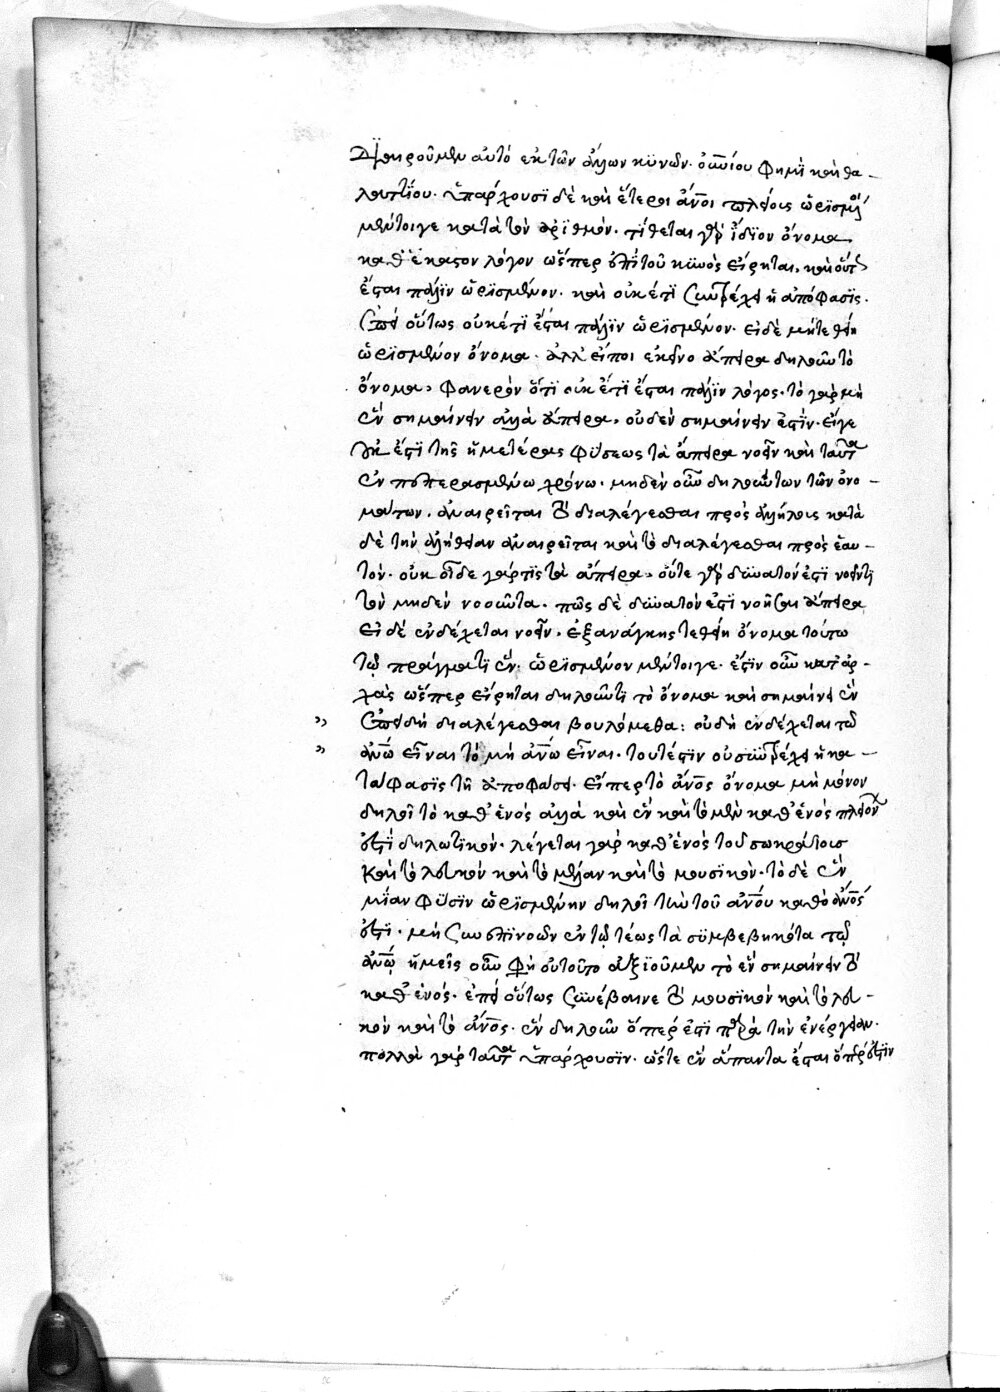 διαιροῦμεν αὐτὸ ἐκ τῶν ἄλλων κϋνῶν. οἰκείου φημῒ καὶ θα-
λαττΐου. ὑπάρχουσϊ δὲ καὶ ἕτεροι ἄνοι πλείους ὡρϊσμένοι
μέντοιγε κατὰ τὸν ἀρϊθμόν. τίθεται γὰρ ἴδϊον ὄνομα
καθ' ἕκαστον λόγον ὥσπερ ἐπὶ τοῦ κϋνὸς εἴρηται, καὶ οὕτως
ἔσται πάλϊν ὡρϊσμένον. καὶ οὐκ έτϊ συντρέχει ἡ ἀπόφασϊς.
ἐπεὶ οὕτως οὐκέτϊ ἔσται πάλϊν ὡρϊσμένον. εἰ δὲ μὴ τεθείη
ὡρϊσμένον ὄνομα. ἀλλ' εἴποι ἐκεῖνο ἄπειρα δηλοῦν τὸ
ὄνομα, φανερὸν ὅτϊ οὐκ έτϊ ἔσται πάλϊν λόγος. τὸ γὰρ μὴ
ἓν σημαίνειν ἀλλὰ ἄπειρα, οὐδὲν σημαίνειν ἐστΐν. εἴγε
μή ἐστϊ τῆς ἡμετέρας φύσεως τὰ ἄπειρα νοεῖν καὶ ταῦτα
ἐν πεπερασμένω χρόνω. μηδὲν οὖν δηλούντων τῶν ὀνο-
μάτων. ἀναιρεῖται τὸ διαλέγεσθαι πρὸς ἀλλήλους κατὰ
δὲ τὴν ἀλήθειαν ἀναιρεῖται καὶ τὸ διαλέγεσθαι πρὸς ἑαυ-
τόν. οὐκ οἶδε γάρ τϊς τὰ ἄπειρα, οὔτε γὰρ δϋνατόν ἐστϊ νοεῖν τϊ
τὸν μηδὲν νοοῦντα. πῶς δὲ δϋνατόν ἐστϊ νοῆσαι ἄπειρα
εἰ δὲ ἐνδέχεται νοεῖν. ἐξανάγκης τεθείη ὄνομα τούτω
τῷ πράγματϊ ἕν. ὡρϊσμένον μέντοιγε. ἔστϊν οὖν κατ' ἀρ-
χὰς ὥσπερ εἴρηται δηλοῦν τϊ τὸ ὄνομα καὶ σημαίνει ἓν
ἐπειδὴ διαλέγεσθαι βουλόμεθα: οὐδὴ ἐνδέχεται τῶ
ἀνω εἶναι τὸ μὴ ἀνω εἶναι. τουτέστϊν οὐ συντρέχει ἡ κα-
τάφασϊς τῆ ἀποφάσει. εἴπερ τὸ ἄνος ὄνομα μὴ μόνον
δηλοῖ τὸ καθ' ἑνός ἀλλὰ καὶ ἓν καὶ τὸ μὲν καθ' ἑνὸς πλειόνων
ἐστϊ δηλωτϊκόν. λέγεται γὰρ καθ' ἑνὸς τοῦ σωκράτους
καὶ τὸ λευκόν καὶ τὸ μέλαν καὶ τὸ μουσϊκόν. τὸ δὲ ἓν
μΐαν φύσϊν ὡρϊσμένην δηλοῖ τὴν τοῦ ἀνου καθὸ ἄνος
ἐστϊ. μὴ συνεπϊνοῶν ἐν τῷ τέως τὰ συμβεβηκότα τῷ
ἀνω ἡμεῖς οὖν φη οὐ τοῦτο ἀξϊοῦμεν τὸ ἓν σημαίνειν τὸ
καθ' ἑνός. ἐπεὶ οὕτως συνέβαινε τὸ μουσϊκόν καὶ τὸ λευ-
κὸν καὶ τὸ ἄνος. ἓν δηλοῦν ὅπερ ἐστϊ παρὰ τὴν ἐνέργειαν.
πολλὰ γὰρ ταῦτα ὑπάρχουσϊν. ὥστε ἓν ἅπαντα ἔσται ὅπερ ἐστϊν